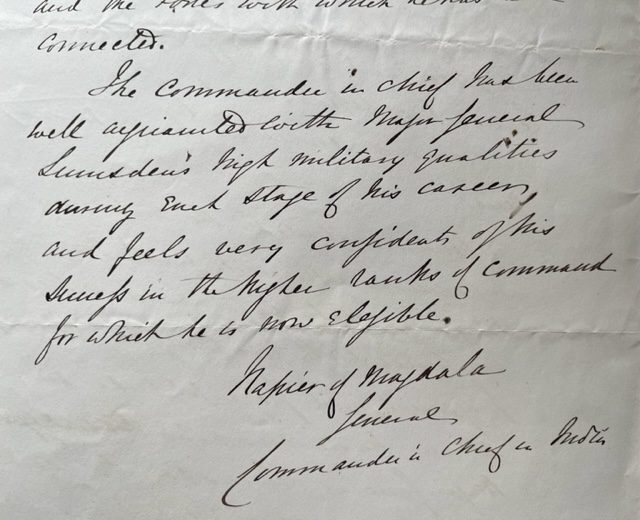 and the     with which he has
connected.
The Commander in Chief has been
well acquainted with Major General
Lumsden's high military qualities
during each stage of his career,
and feels very confident of his
success in the higher ranks of Command
for which he is now eligible.
Napier of Magdala
General
Commander in Chief in India